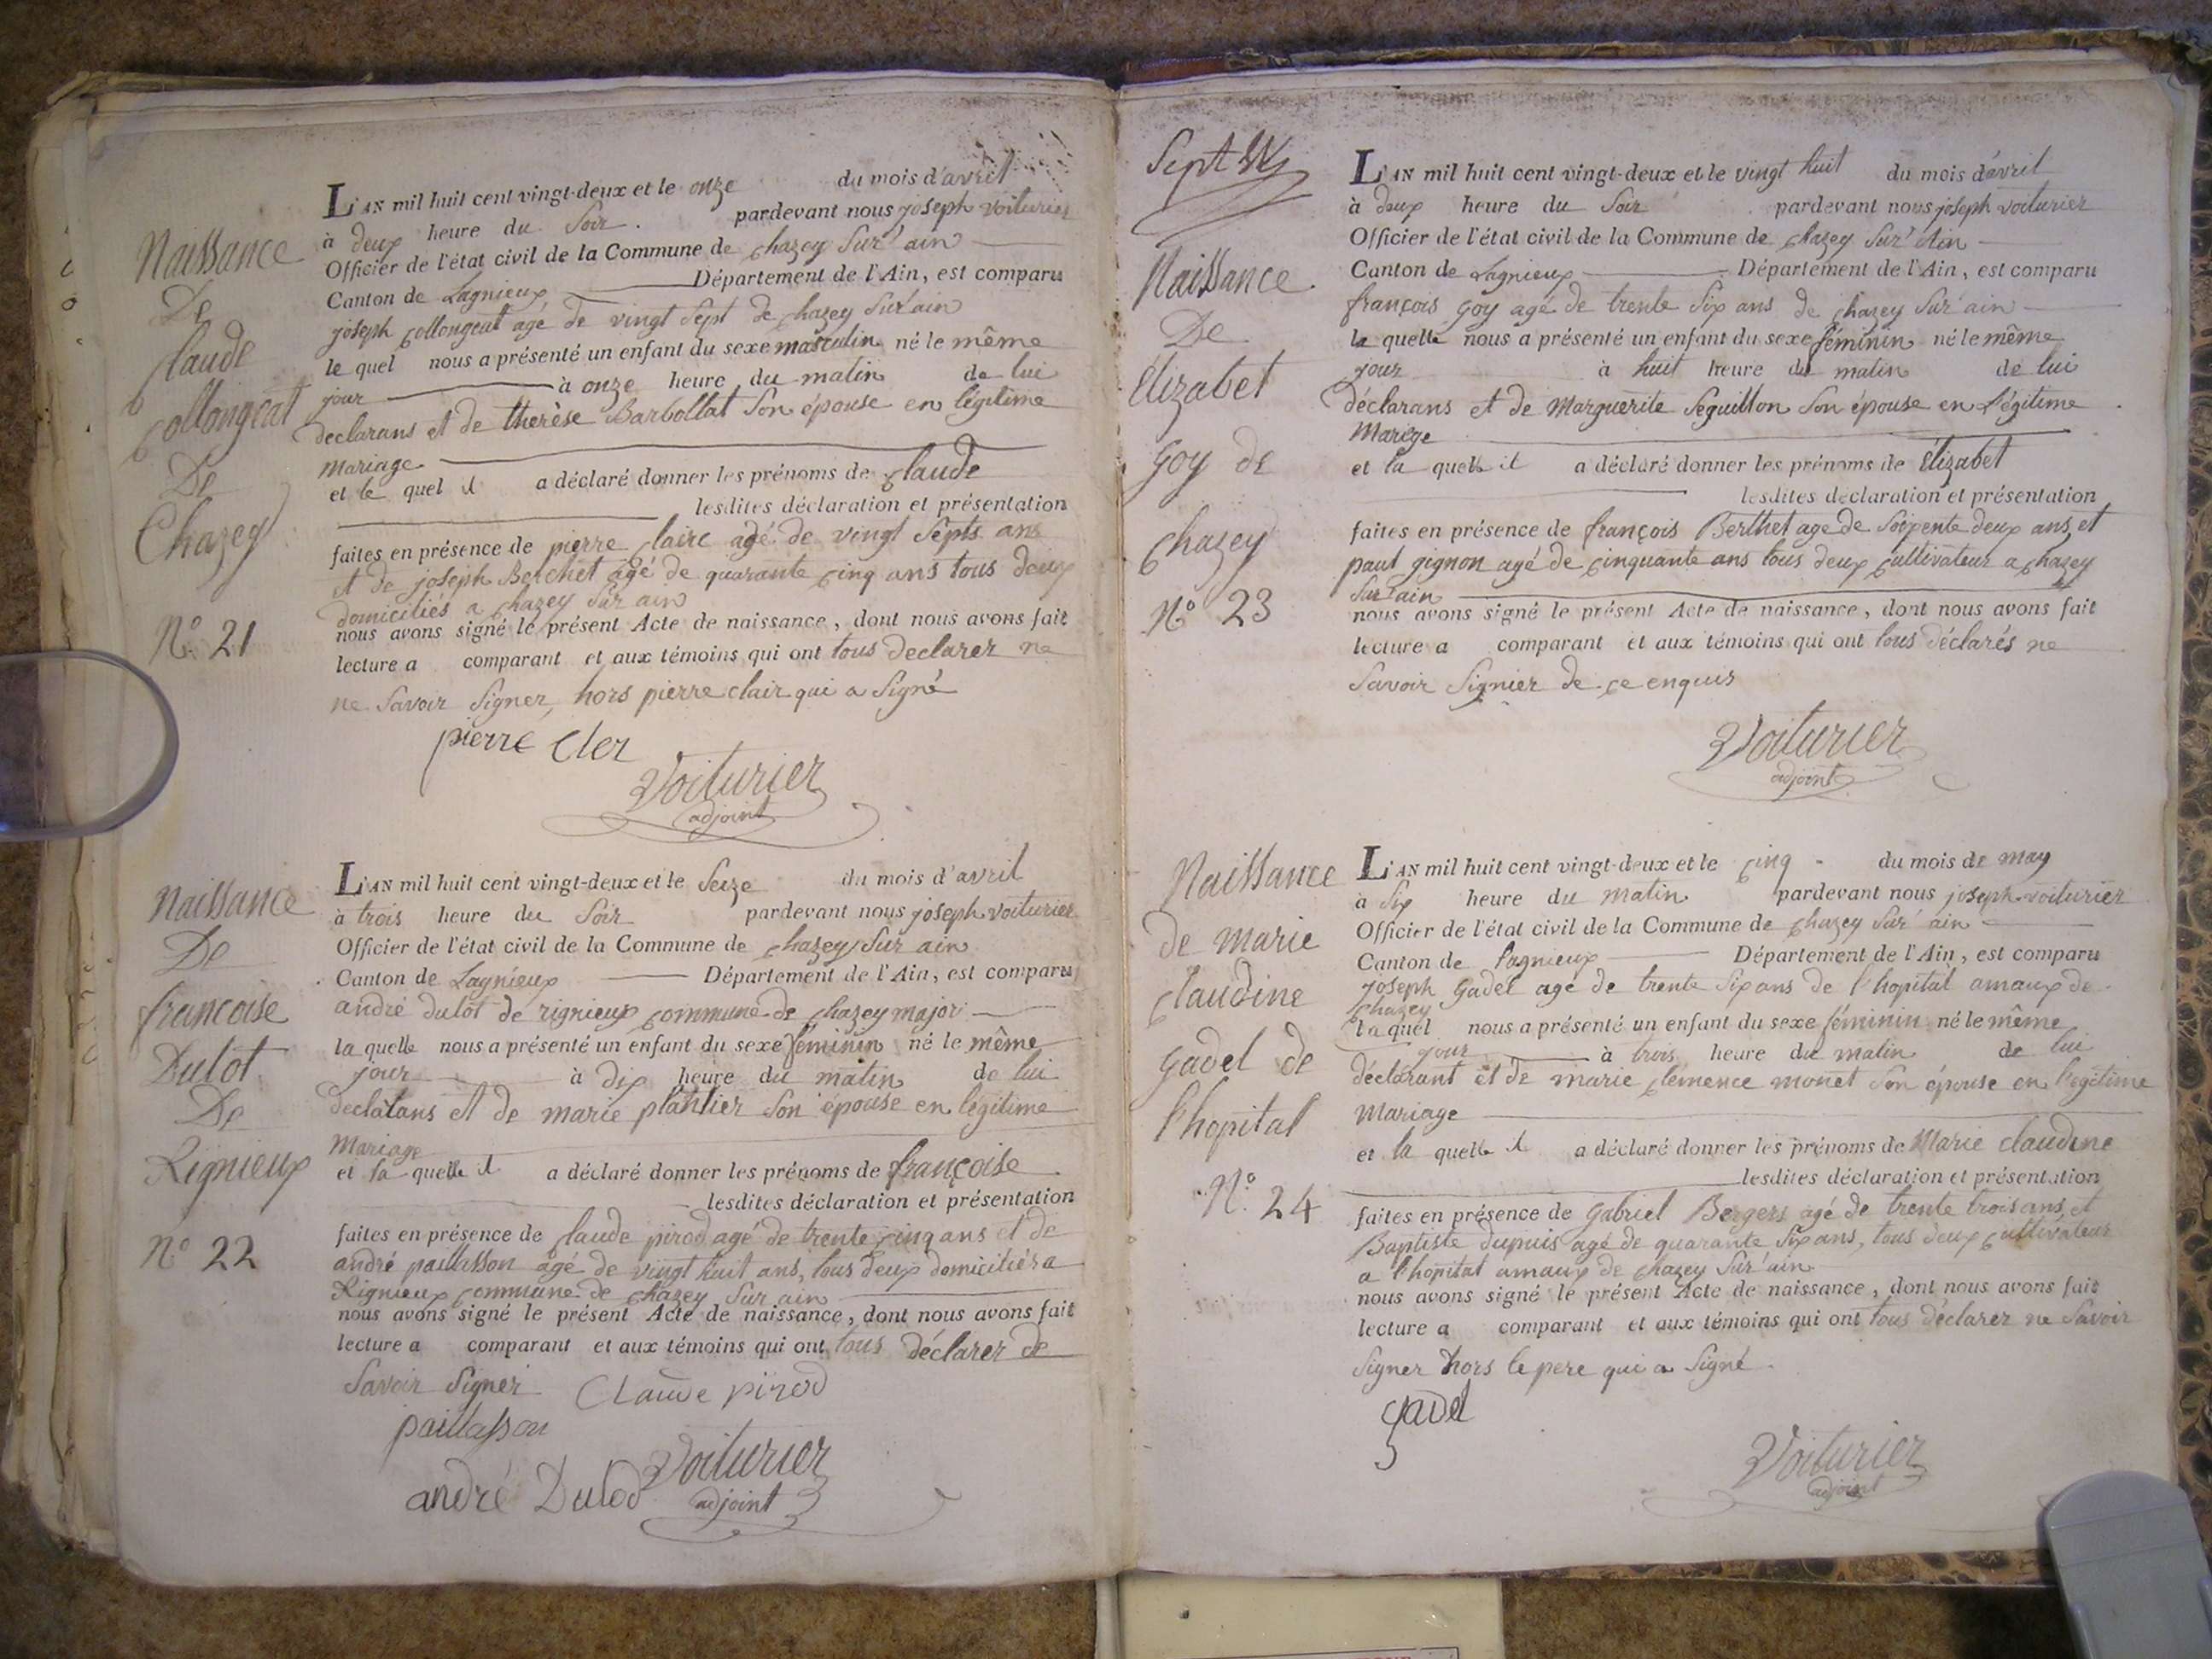 Naissance
De
Claude
Collongeat
De
Chazey
N.° 21
L'AN mil huit cent vingt-deux et le onze du mois d'avril
à deux heure du Soir. pardevant nous joseph voiturier
Officier de l'état civil de la Commune de Chazey Sur ain
Canton de Lagnieux Département de l'Ain, est comparu
joseph Collongeat agé de vingt Sept de Chazey Sur ain
le quel nous a présenté un enfant du sexe masculin né le même
jour à onze heure du matin de lui
declarans et de therèse Barbollat Son épouse en légitime
mariage
et le quel il a déclaré donner les prénoms de Claude
lesdites déclaration et présentation
faites en présence de pierre Claire agé de vingt Septs ans
et de joseph Berchet agé de quarante Cinq ans tous deux
domiciliés a Chazey Sur ain
nous avons signé le présent Acte de naissance, dont nous avons fait
lecture a comparant et aux témoins qui ont tous declarer ne
ne Savoir Signer, hors pierre clair qui a Signé
pierre Cler
Voiturier
adjoint
Naissance
De
francoise
Dulot
De
Rignieux
N° 22
L'AN mil huit cent vingt-deux et le Seize du mois d'avril
à trois heure du Soir pardevant nous joseph voiturier
Officier de l'état civil de la Commune de Chazey Sur ain
Canton de Lagnieux Département de l'Ain, est comparu
andré dulot de rignieux Commune de Chazey major
la quelle nous a présenté un enfant du sexe féminin né le même
jour à dix heure du matin de lui
declatans et de marie plantier Son épouse en légitime
Mariage
et la quelle il a déclaré donner les prénoms de françoise
lesdites déclaration et présentation
faites en présence de Claude pirod agé de trente Cinq ans et de
andré paillasson agé de vingt huit ans, tous deux domiciliés a
Rignieux Commune de Chazey Sur ain
nous avons signé le présent Acte de naissance, dont nous avons fait
lecture a comparant et aux témoins qui ont tous déclarer de
Savoir Signer Claude pirod
paillasson
Voiturier
andré Dulod adjoint
Sept
Naissance
De
Élizabet
Goy de
Chazey
N° 23
L'AN mil huit cent vingt-deux et le vingt huit du mois d'avril
à deux heure du Soir pardevant nous joseph voiturier
Officier de l'état civil de la Commune de Chazey Sur Ain
Canton de Lagnieux Département de l'Ain, est comparu
françois Goy agé de trente Six ans de Chazey Sur ain
la quelle nous a présenté un enfant du sexe féminin né le même
jour à huit heure du matin de lui
déclarans et de Marguerite Seguillon Son épouse en Légitime
Marége
et la quelle il a déclaré donner les prénoms de Élizabet
lesdites déclaration et présentation
faites en présence de françois Berthet age de Soixente deux ans, et
paul gignon agé de Cinquante ans tous deux Cultivateur a Chazey
Sur ain
nous avons signé le présent Acte de naissance, dont nous avons fait
lecture a comparant et aux témoins qui ont tous déclarés ne
Savoir Signier de Ce enquis
Voiturier
adjoint
Naissance
de marie
Claudine
Gadel de
l'hopital
N.° 24
L'AN mil huit cent vingt-deux et le Cinq du mois de may
à Six heure du matin pardevant nous joseph voiturier
Officier de l'état civil de la Commune de Chazey Sur ain
Canton de Lagnieux Département de l'Ain, est comparu
joseph Gadel agé de trente Six ans de l'hopital amaux de
Chazey
la quel nous a présenté un enfant du sexe féminin né le même
jour à trois heure du matin de lui
déclarant et de marie Clémence monet Son épouse en legitime
Mariage
et la quelle il a déclaré donner les prénoms de Marie Claudine
lesdites déclaration et présentation
faites en présence de Gabriel Bergers agé de trente trois ans, et
Baptiste dupuis agé de quarante Six ans, tous deux Cultivateur
a l'hopital amaux de Chazey Sur ain
nous avons signé le présent Acte de naissance, dont nous avons fait
lecture a comparant et aux témoins qui ont tous déclarer ne Savoir
Signer hors le pere qui a Signé
Gadel
Voiturier
adjoint